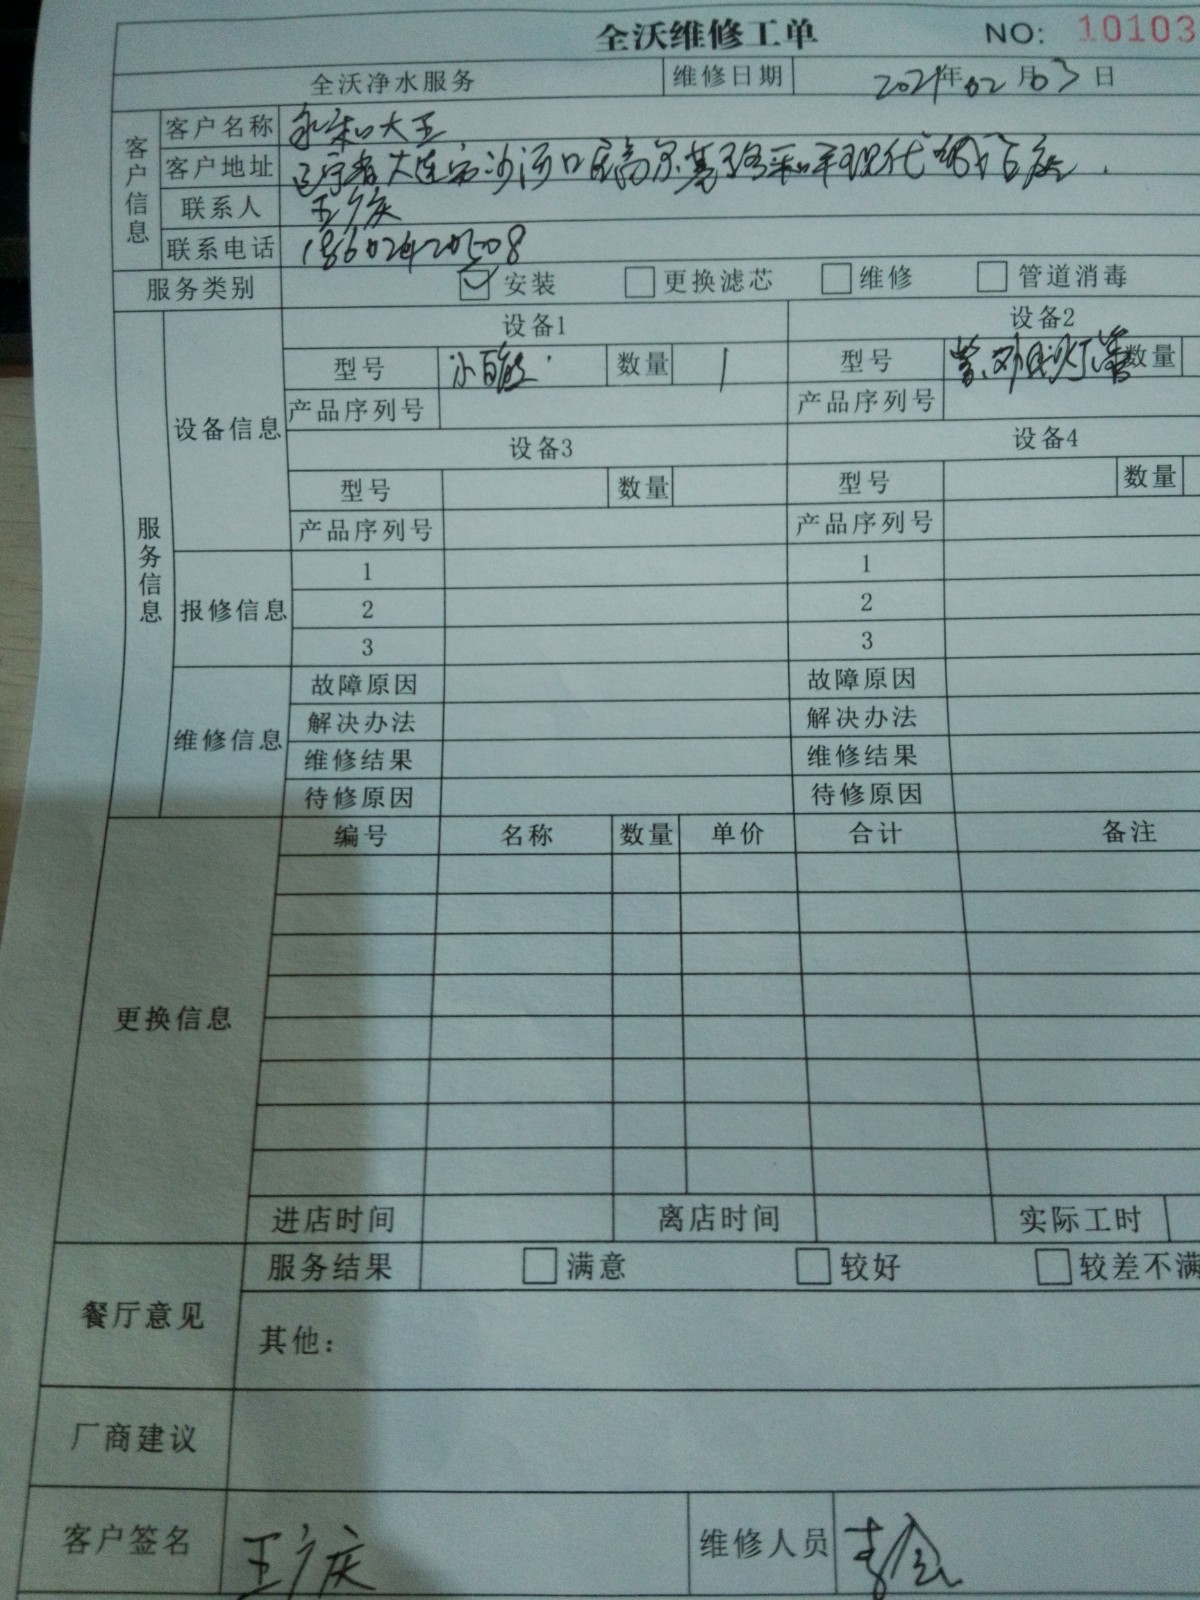 全沃维修工单 NO: 10103
全沃净水服务 维修日期 2021年02月03日
客户信息
客户名称 永和大王
客户地址 辽宁省大连市沙河口区高尔基路和平现代
联系人 王广庆
联系电话
服务类别 安装 更换滤芯 维修 管道消毒
服务信息
设备信息
设备1 设备2
型号 数量 1 型号 数量
产品序列号 产品序列号
设备3 设备4
型号 数量 型号 数量
产品序列号 产品序列号
报修信息
1 1
2 2
3 3
维修信息
故障原因 故障原因
解决办法 解决办法
维修结果 维修结果
待修原因 待修原因
更换信息
编号 名称 数量 单价 合计 备注
进店时间 离店时间 实际工时
餐厅意见
服务结果 满意 较好 较差不满
其他：
厂商建议
客户签名 王广庆 维修人员